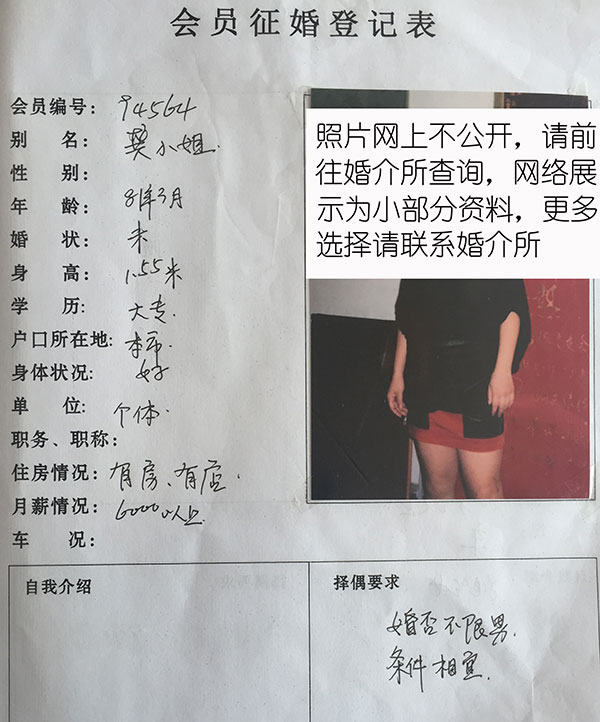 会员征婚登记表
会员编号：94564
别 名：龚小姐
性 别：
年 龄：81年3月
婚 状：未
身 高：1.55米
学 历：大专
户口所在地：本市
身体状况：好
单 位：个体
职务、职称：
住房情况：有房、有店
月薪情况：6000以上
车 况：
照片网上不公开，请前
往婚介所查询，网络展
示为小部分资料，更多
选择请联系婚介所
自我介绍
择偶要求
婚否不限男
条件相宜